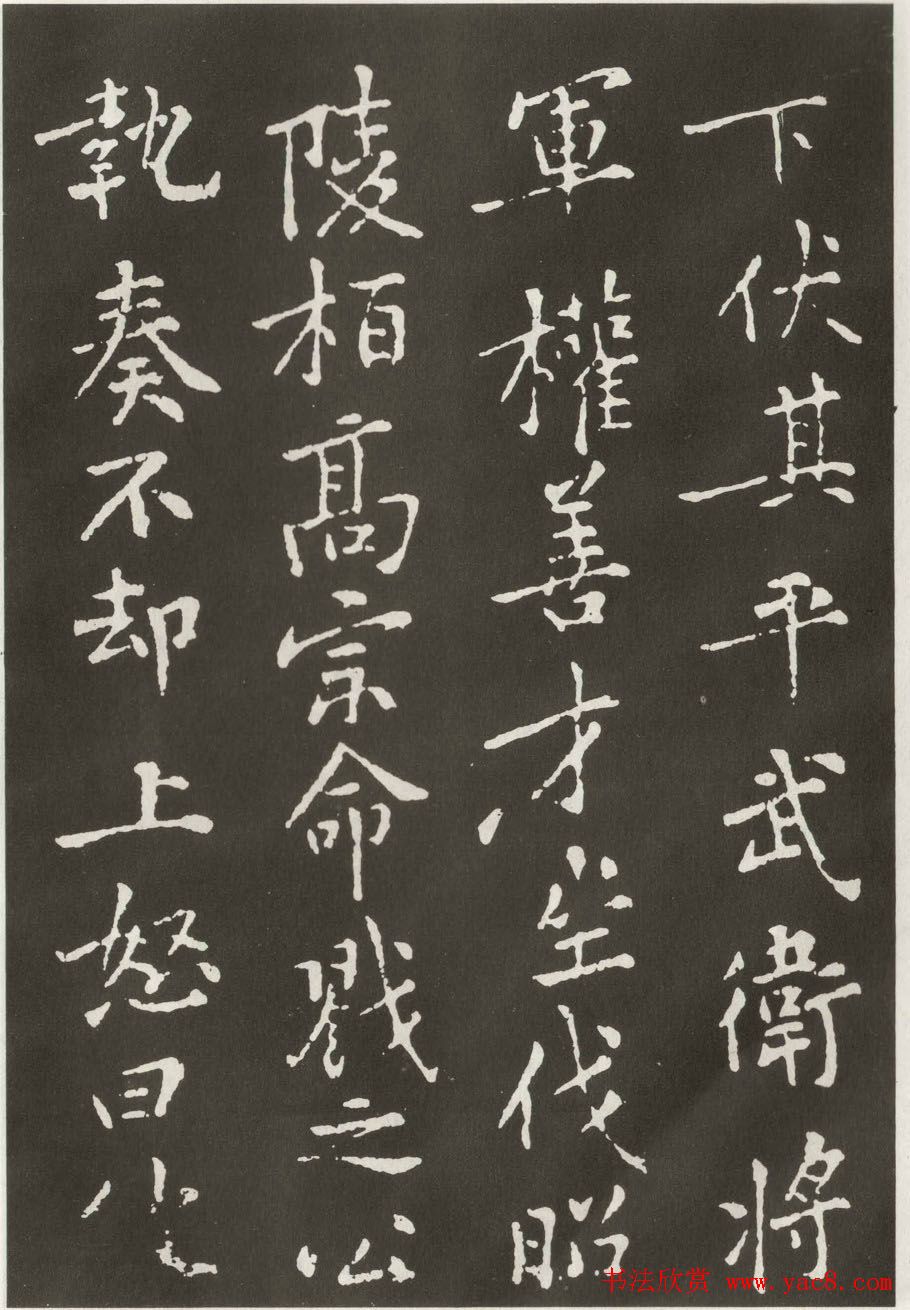 下伏其平武衛將
軍權善才坐伐昭
陵柏高宗命戮之公
執奏不却上怒曰
书法欣赏 www.yac8.com